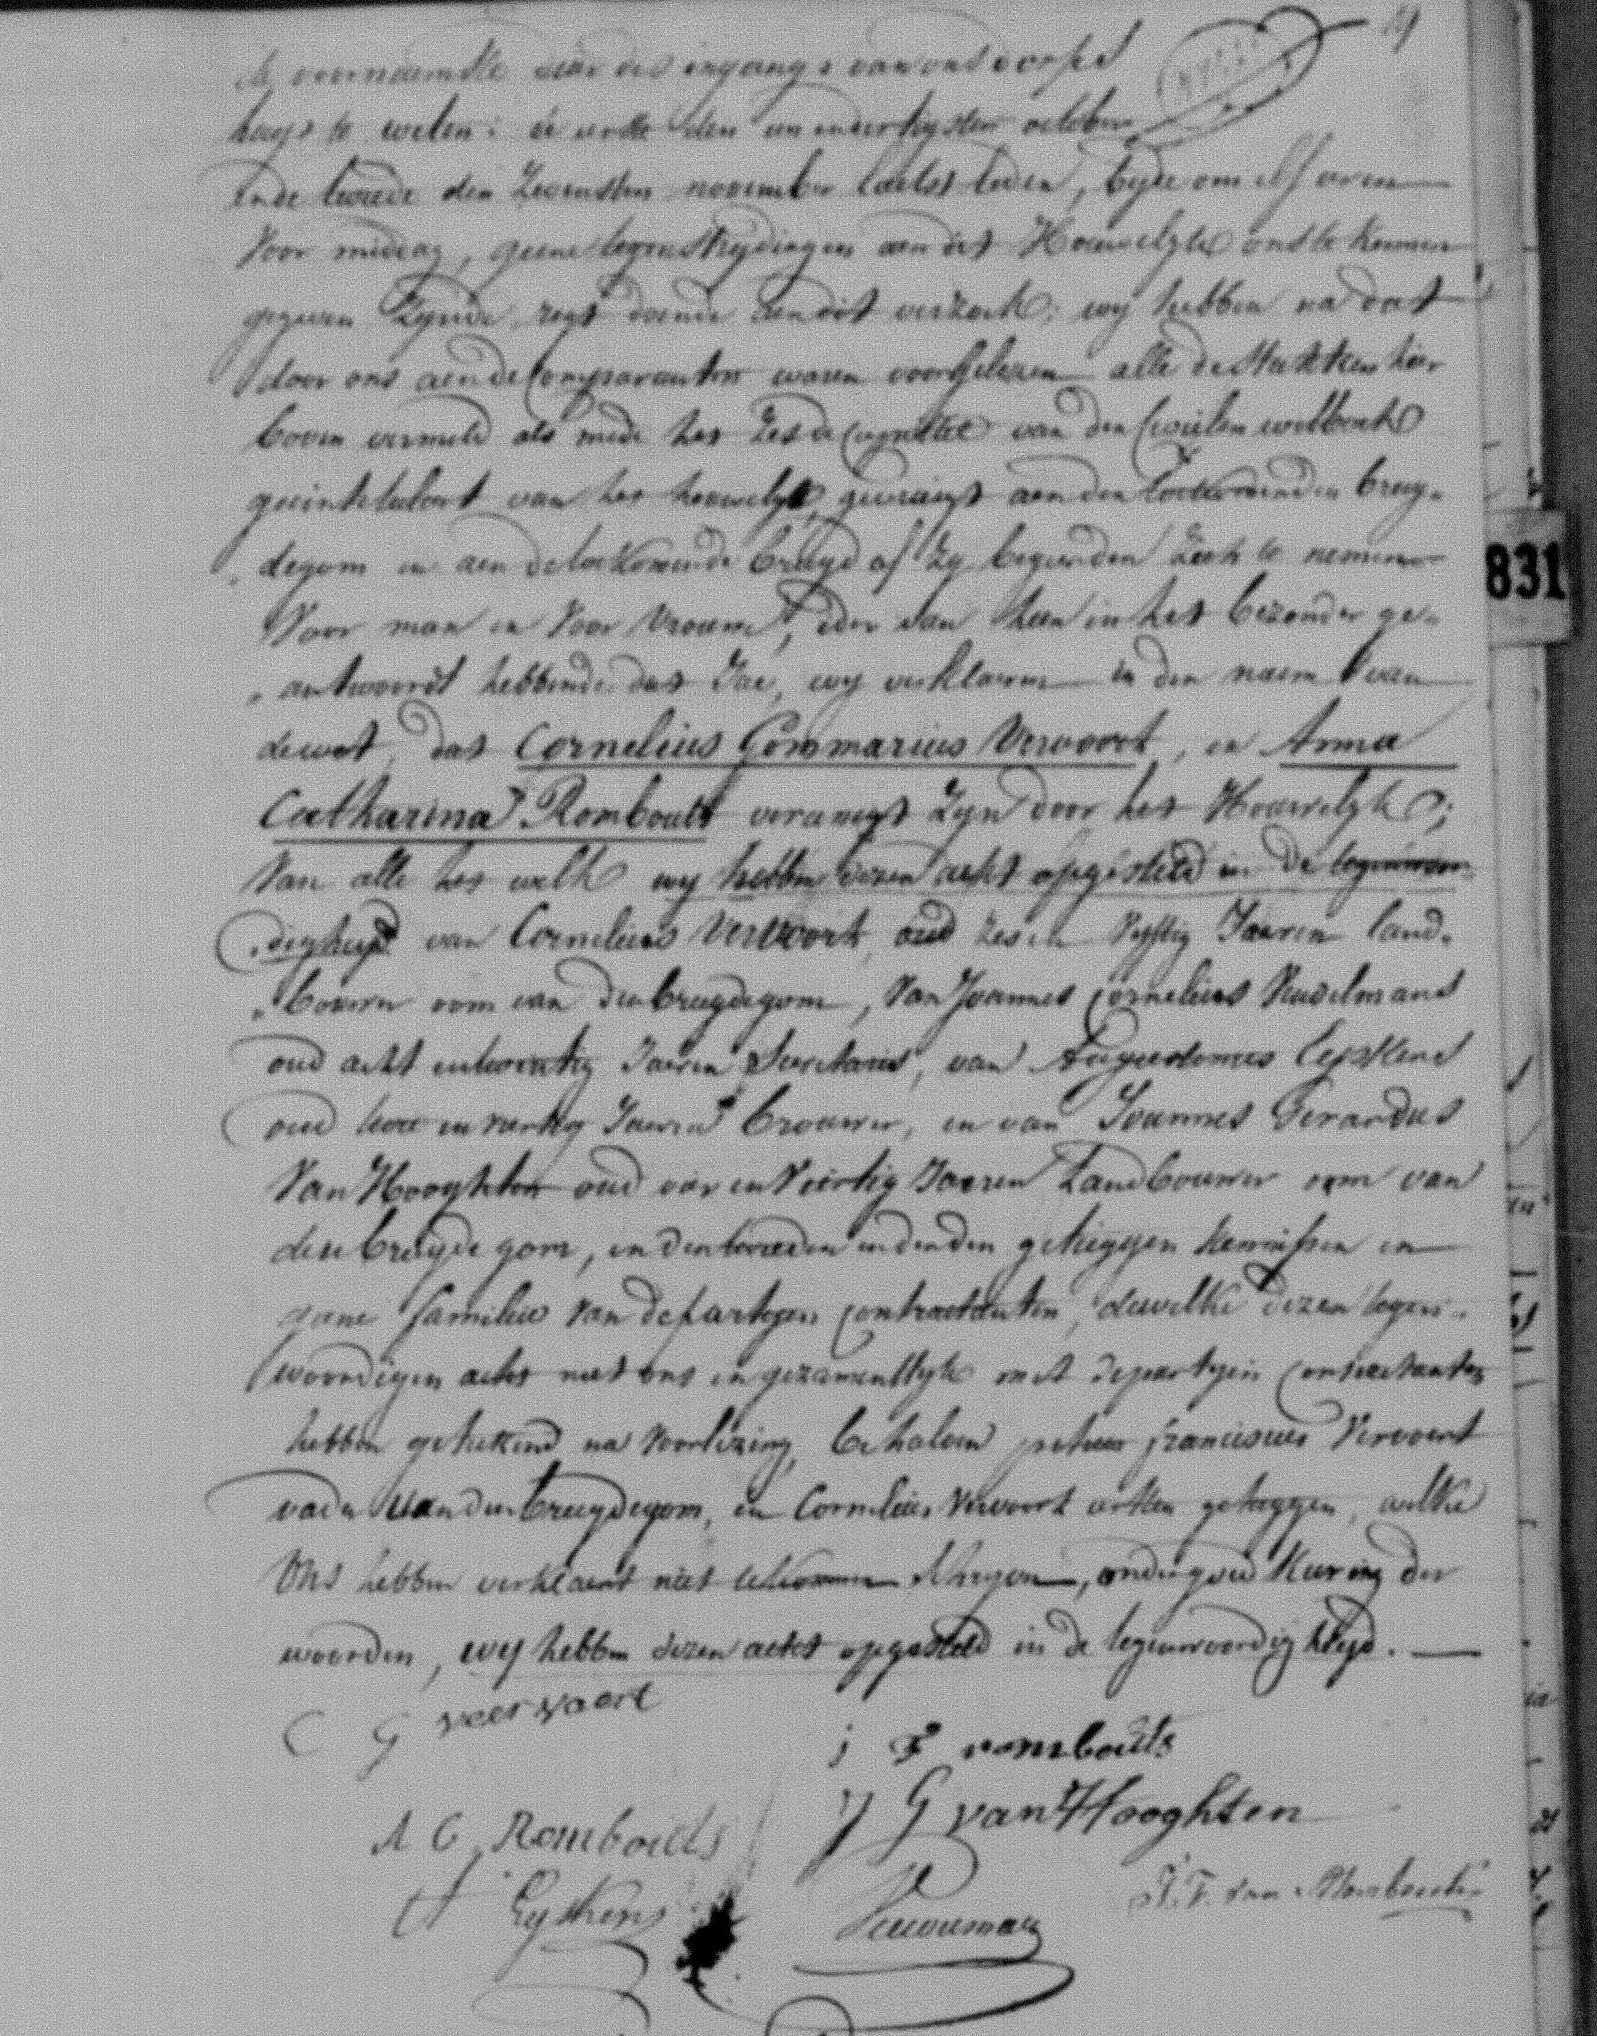 de voornaemste deur des ingangs van ons dorps
huys te weten: de eerste den een en dertigsten october
ende tweede den Zevensten november laetst leden, byde om elf uren
Voor middag, geene tegenstrydingen aen dit Houwelyk ons te kennen
gegeven Zynde, regt doende aen dit verzoek; wy hebben na dat
door ons aen de Comparanten waren voorgelezen alle de stukken hier
boven vermeld als mede het Zesde Capittel van den Civielen wetboek
geintituleert van het houwelyk, gevraegt aen den toekomenden bruy„
degom en aen de toekomende bruyd of Zy begeerden Zich te nemen
Voor man en Voor Vrouwe, ider van hun in het bezonder ge„
„antwoordt hebbende dat Jae, wy verklaeren in den naem van
de wet, dat Cornelius Gommarius Vervoort, en Anna
Catharina Rombouts vereenigt Zyn door het Houwelyk;
Van alle het welk wy hebben dezen acht opgesteld in de tegenwoor„
„digheyd van Cornelius Vervoort, oud zes en Vyftig Jaeren land„
„bouwer oom van den bruydegom, Van Joannes Cornelius
oud acht entwintig Jaeren Secretaris, van Augustinus Eyskens
oud twee en veertig Jaeren brouwer, en van Joannes Gerardus
Van Hooghten oud vier en Veertig Jaeren Landbouwer oom van
den bruydegom, en den tweeden en derden getuygen kennissen en
geene familie Van de partyen Contractanten, dewelke dezen tegen„
woordigen acht met ons en gezamentlyk met de partyen Contractanten
hebben getekend na Voorlezing, behalven petrus franciscus Vervoort
vader van den bruydegom, en Cornelius Vervoort eersten getuygen, welke
Ons hebben verklaert niet te konnen schryven, ondergoed keuring der
woorden, wy hebben dezen acht opgesteld in de tegenwoordigheyd.
C G veervoort
j F rombouts
A C Rombouts
J G van Hooghten
A Eyskens
J. F. van